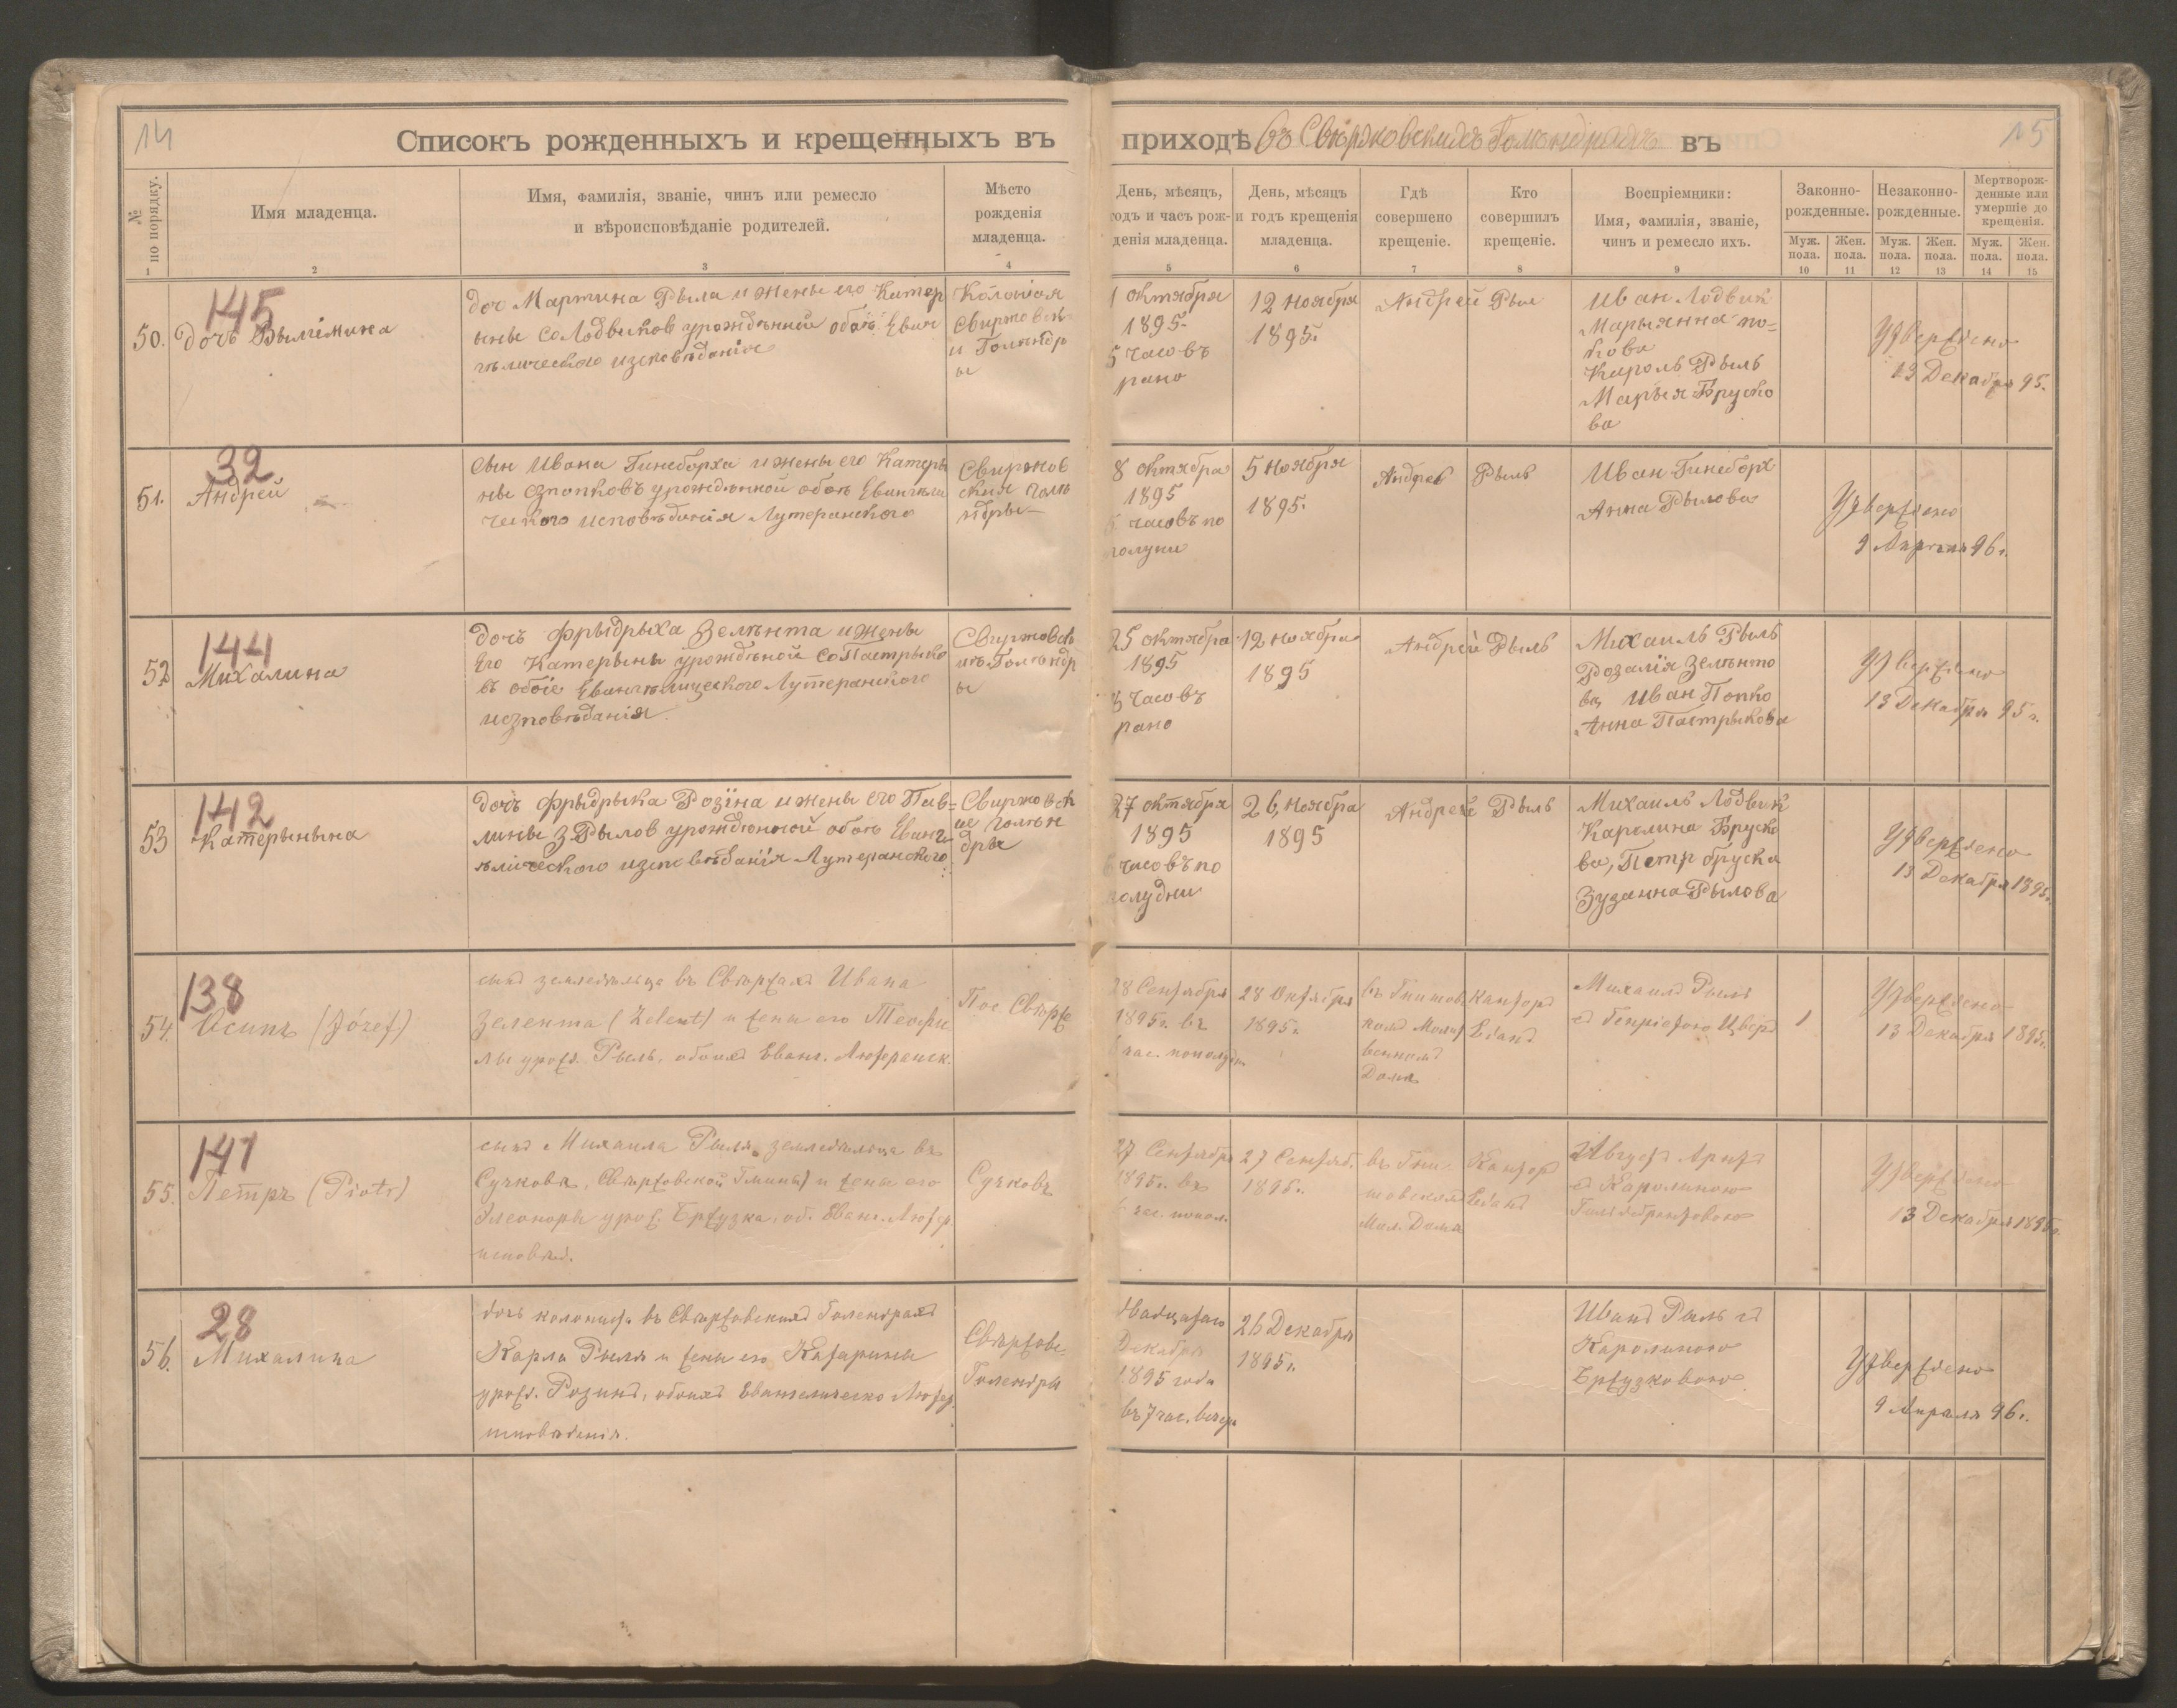 14
Списокъ рожденныхъ и крещенныхъ въ приходѣ въ Свѣржовскихъ Голендрахъ въ
15
№ по порядку.
Имя младенца.
Имя, фамилія, званіе, чинъ или ремесло
и вѣроисповѣданіе родителей.
Мѣсто
рожденія
младенца.
День, мѣсяцъ,
годъ и часъ рож-
денія младенца.
День, мѣсяцъ
и годъ крещенія
младенца.
Гдѣ
совершено
крещеніе.
Кто
совершилъ
крещеніе.
Воспріемники:
Имя, фамилія, званіе,
чинъ и ремесло ихъ.
Законно-
рожденные.
Незаконно-
рожденные.
Мертворож-
денные или
умершіе до
крещенія.
Муж. пола.
Жен. пола.
Муж. пола.
Жен. пола.
Муж. пола.
Жен. пола.
1 2 3 4 5 6 7 8 9 10 11 12 13 14 15
50.
145
дочъ Вылгімина
доч Мартина Рыла и жены его Катер
ыны со Лодвиков урождѣнной обоѣ Еван
гѣлическаго изповѣданія
Колонія
Свиржовск
и Голѣндр
ы
1 октября
1895
5 часовъ
рано
12 ноября
1895.
Андрей Рыл
Иван Лодвик
Марыянна по=
пова
Кароль Рыль
Марыя Бруско
ва
Утверждено
13 Декабря 95.
51.
32
Андрей
сын Ивана Гинеборха и жены его Катеры
ны спопковъ урождѣнной обоѣ Евангели
ческого исповѣданія Лутеранского
Свиржов
ския голѣ
ндры
8 октября
1895
часовъ по
полуни
5 ноября
1895.
Андрей Рыль
Иван Гинеборх
Анна Рылова
Утверждено
9 Апреля 96 г.
52
144
Михалина
дочъ Фрыдрыха Зелѣнта и жены
Его Катерыны урождѣной со Пастрыко
въ обоіе Евангѣлического Лутеранского
изповѣданія.
Свиржовск
ихъ Голѣндр
ы
25 октября
1895
3 часовъ
рано
12 ноября
1895
Андрей Рыль
Михаиль Рыль
Розалія Зелѣнто
ва, Иван Попко
Анна Пастрыкова
Утверждено
13 Декабря 95 г.
53
142
Катерынына
дочъ Фрыдрыка Розіна и жены его Пав=
лины З Рылов урождѣнной обоѣ Еванг
ѣлического изповѣданія Лутеранского
Свиржовск
ие голѣн
дры
27 октября
1895
часовъ по
полудни
26, ноября
1895
Андрей Рыль
Михаиль Лодвик
Каролина Бруско
ва, Петр бруска
Зузанна Рылова
Утверждено
13 Декабря 1895 г.
54.
138
Осипъ (Józef)
сынъ земледѣльца въ Свѣржахъ Ивана
Зелента (Zelent) и жены его Теофи
лы урожд. Рыль, обоихъ Еванг. Лютеранск.
Пос. Свѣрже
28 Сентября
1895 г. въ
час. пополудн.
28 Октября
1895 г.
въ Гнишов
комъ Молит
венномъ
Домѣ
Канторъ
Михаилъ Рыль
съ Генріетою
1
Утверждено
13 Декабря 1895 г.
55.
141
Петръ (Piotr)
сынъ Михаила Рыля, земледѣльца въ
Сучковѣ, Свѣржовской Гмины и жены его
Элеоноры урож. Брѣузка, об. Еванг. Лютер.
исповѣд.
Сучковъ
27 Сентября
1895 г. въ
час. попол.
27 Сентяб.
1895 г.
въ Гни-
шовскомъ
Мол. Домѣ
Канторъ
Августъ
съ Каролиною
Утверждено
13 Декабря 1895 г.
56.
28
Михалина
дочь колониста въ Свѣржовскихъ Голендрахъ
Карла Рыля и жены его Катарины
урожд. Розинъ, обоихъ Евангелическо Лютер.
исповѣданія.
Свѣржове-
Голендры
двадцатаго
Декабря
1895 года
въ 7 час. вечера
26 Декабря
1895 г.
Иванъ Рыль съ
Каролиною
Утверждено
9 Апрѣля 96 г.